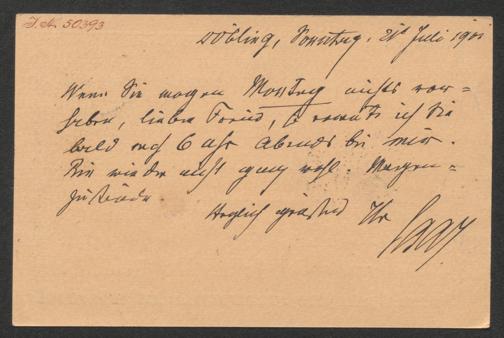 I.N. 50393
Döbling, Sonntag, 21t Juli 1901
Wenn Sie morgen Montag nichts vor=
haben, lieber Freund, so erwarte ich Sie
bald nach 6 Uhr Abends bei mir.
Bin wieder nicht ganz wohl. Magen=
zustände.
Herzlich grüßend Ihr
Saar